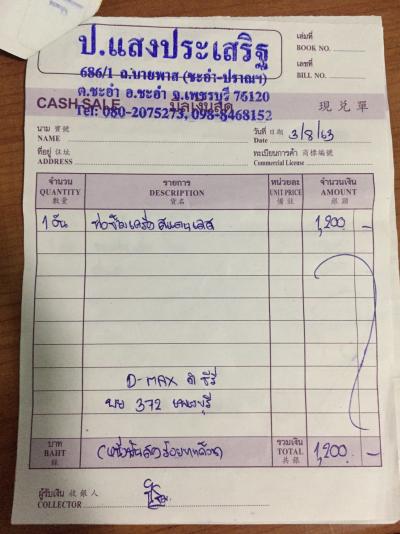 ป.แสงประเสริฐ
686/1 ถ.บายพาส (ชะอำ-ปราณฯ)
ต.ชะอำ อ.ชะอำ จ.เพชรบุรี 76120
Tel: 080-2075273, 098-8468152
เล่มที่
BOOK NO.
เลขที่
BILL NO.
CASH SALE บิลเงินสด 現兌單
นาม 寶號
NAME
วันที่ 日期
Date 3/8/63
ที่อยู่ 住址
ADDRESS
ทะเบียนการค้า 商標編號
Commercial License
จำนวน รายการ หน่วยละ จำนวนเงิน
QUANTITY DESCRIPTION UNIT PRICE AMOUNT
數量 貨名 備註 銀額
1 อัน 1,200 -
D-MAX
372 เพชรบุรี
บาท
BAHT
銖
(หนึ่งพันสองร้อยบาทถ้วน)
รวมเงิน
TOTAL
共銀
1,200 -
ผู้รับเงิน 收銀人
COLLECTOR